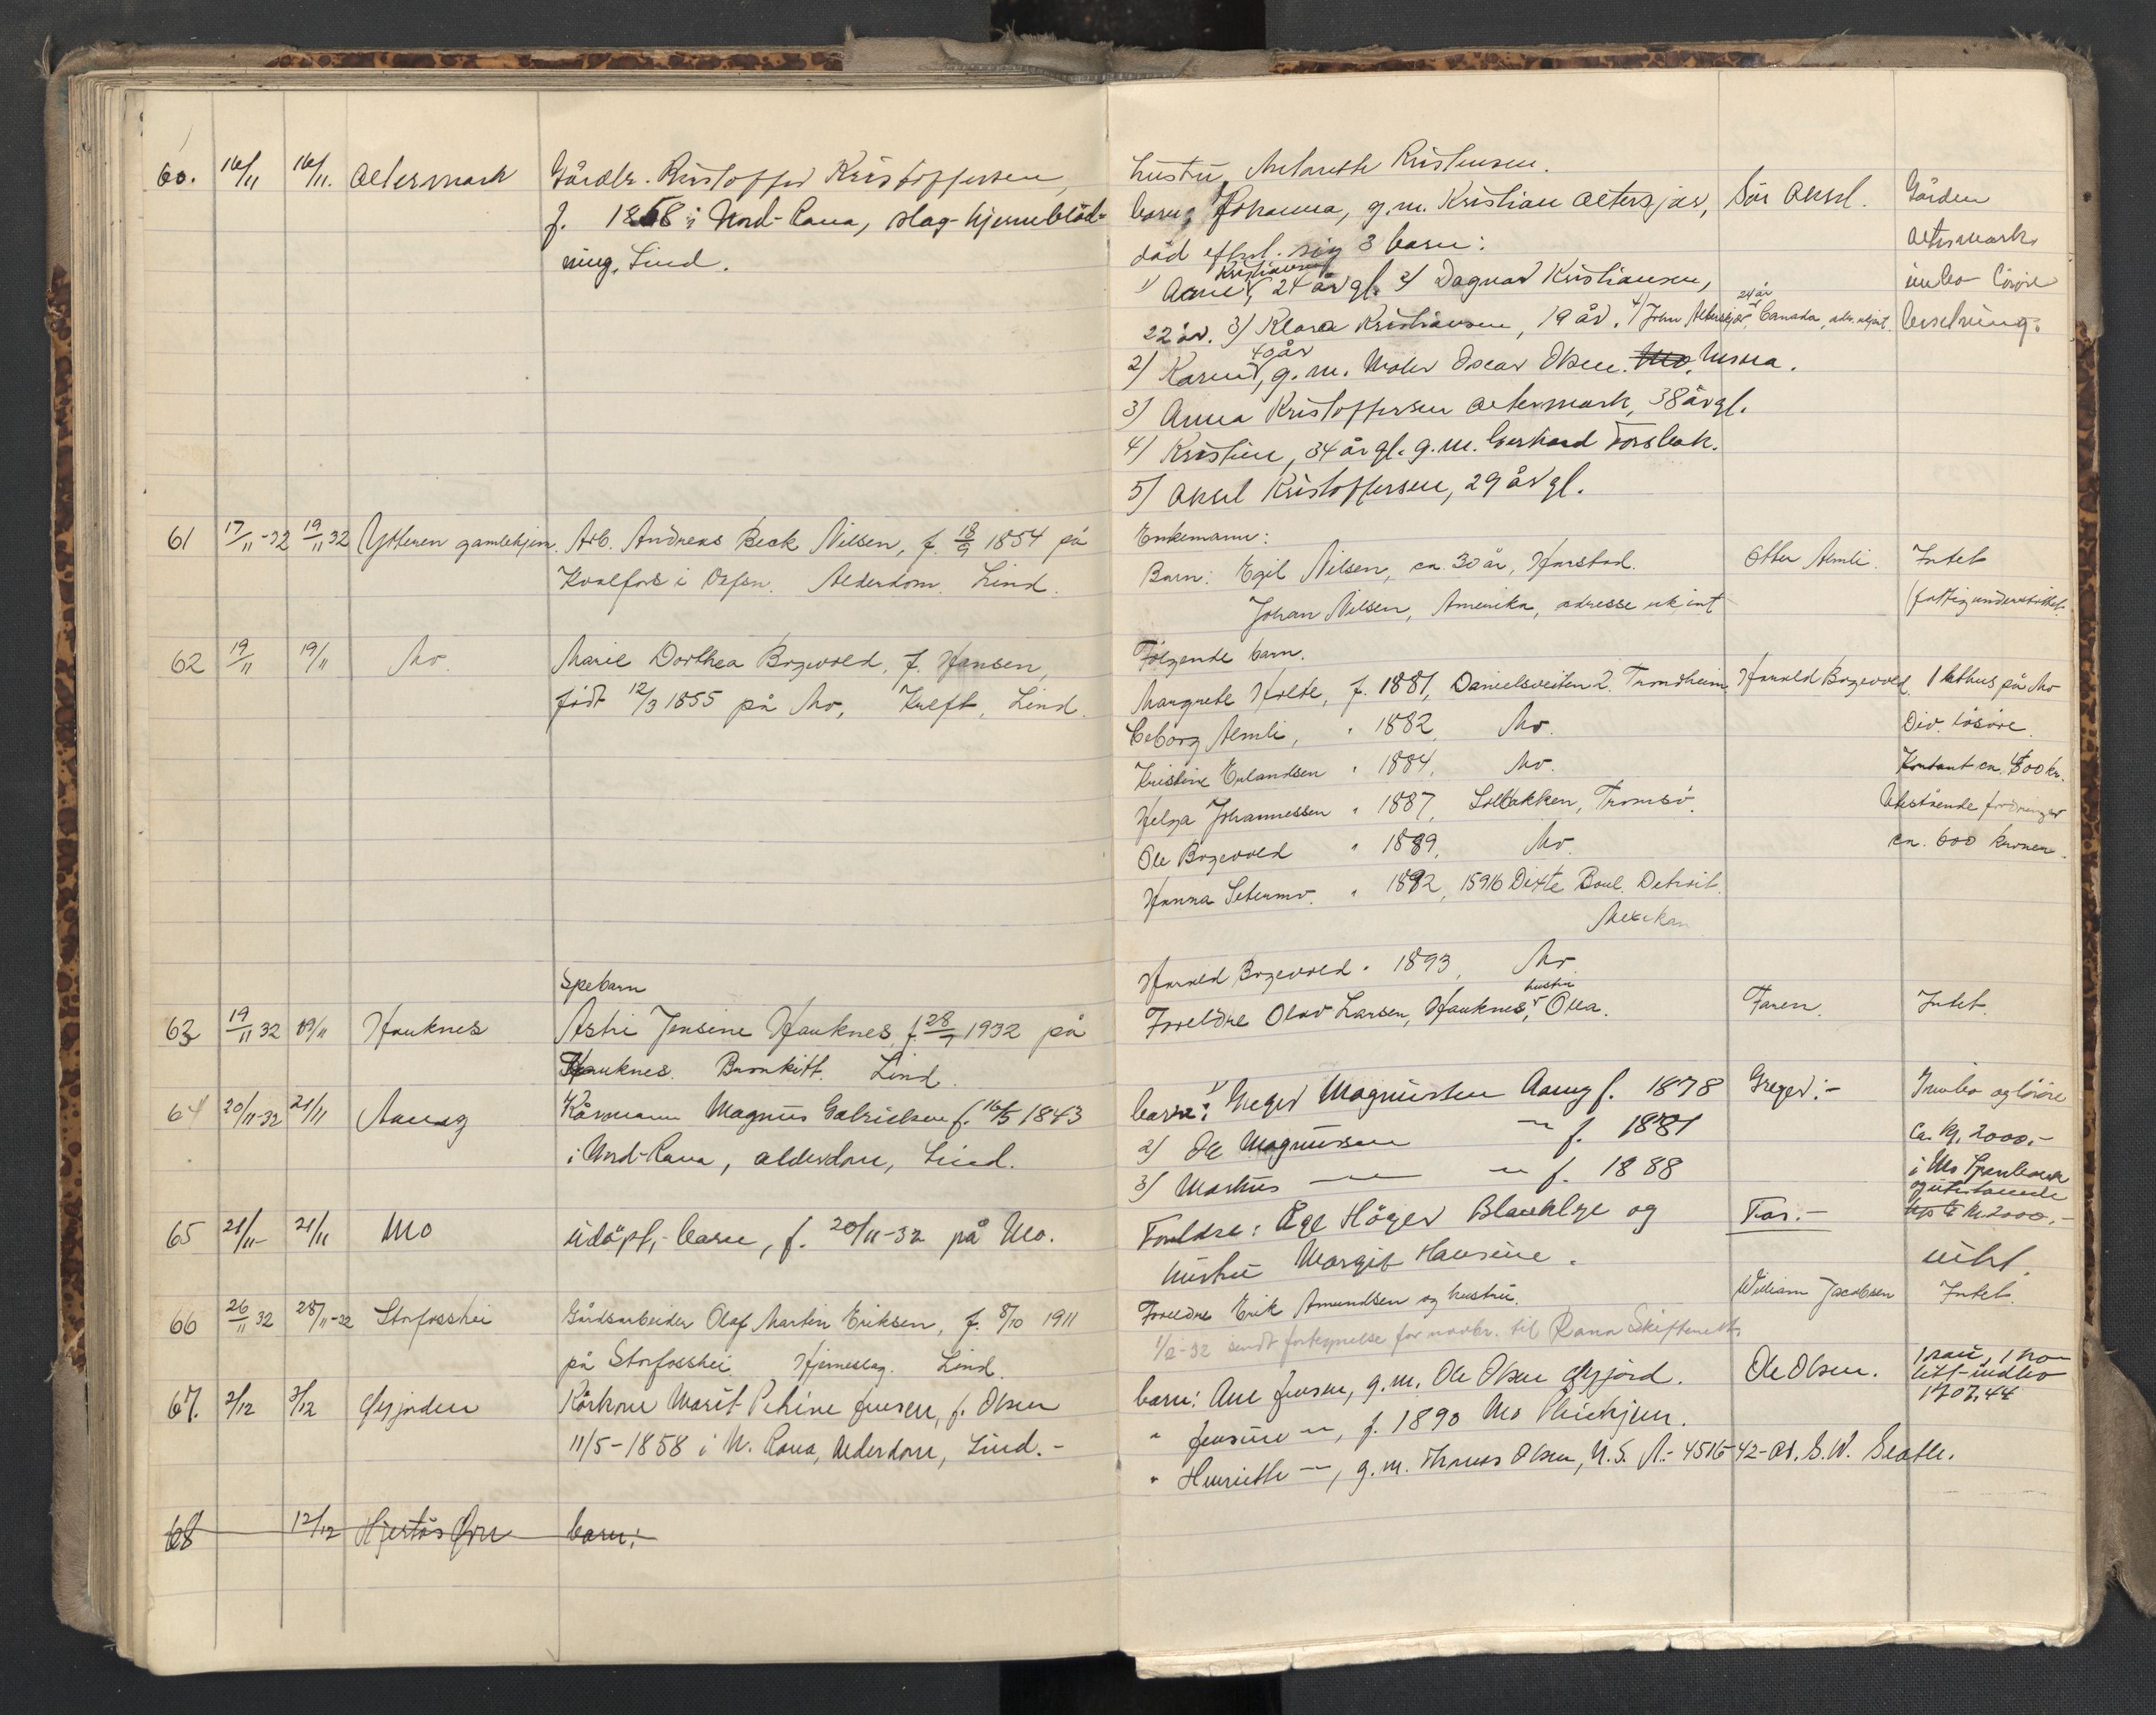 60. 16/11 16/11. Altermark Gårdbr. Kristoffer Kristoffersen,
f. 1858 i Nord-Rana, slag-hjerneblöd-
ning, Lind.
hustru,
barn: Johanna, g.m. Kristian Alterskjær, Sön Aksel. Gården
död efterl. sig 3 barn: Altermark,
1) Kristiansen, 24 år gl. 2) Dagmar Kristiansen, innbo lösöre
22 år. 3) Klara Kristiansen, 19 år. 4) John Alterskjær, 24 år Canada, adr. ukjent. besetning.
2) 40 år g.m. Maler Oscar Olsen. Mo.
3) Anna Kristoffersen Altermark, 38 år gl.
4) Kristine, 34 år gl. g.m. Gerhard Forsbak.
5) Aksel Kristoffersen, 29 år gl.
61 17/11-32 19/11 32 Ytteren gamlehjem. Arb. Andreas Beck Nilsen, f. 18/9 1854 på
Kvalfors i Vefsn. Alderdom. Lind.
Enkemann:
Barn: Egil Nilsen, ca. 30 år, Harstad. Otter Aemli. Intet
Johan Nilsen, Amerika, adresse ukjent (fattigunderstöttet.
62 19/11 19/11 Mo. Marie Dorthea Bogevold, f. Hansen,
født 12/3 1855 på Mo, Kreft, Lind.
Følgende barn.
Margrete Holte, f. 1881, Danielsveiten 2. Trondheim. Harald Bogevold. 1 bethus på Mo
Aemli, " 1882, Mo. Div. lösöre.
Kristine Erlandsen " 1884, Mo. Kontant ca. 800 kr.
Helga Johannessen " 1887, Solbakken, Tromsö. Utestående fordringer
Ole Bogevold " 1889, Mo. ca. 600 kroner.
Hanna Setermo. " 1892, 15916 Dixte Boul. Detroit.
Harald Bogevold " 1893, Mo
63 19/11 32 19/11 Hauknes Spebarn
Astri Jensine Hauknes, f. 28/7 1932 på
Hauknes. Bronkitt. Lind.
Foreldre Olav Larsen, Hauknes, hustru Olla. Faren. Intet.
64 20/11-32 21/11 Aaneng Kårmann Magnus Gabrielsen f. 16/5 1843
i Nord-Rana, alderdom, Lind.
barn: 1) Greger Magnussen Aaneng f. 1878 Greger:- Innbo og lösöre
2) Ole Magnussen —"— f. 1881 Ca. kr. 2000.-
3) Markus —"— —"— f. 1888 i Mo Sparebank
og utestaaende
kr. 2000.-
65 21/11- 21/11 Mo udöpt,- barn, f. 20/11-32 på Mo.
Foreldre: Höger og Far.-
hustru Margit Hansine. intet.
66 26/11 32 28/11-32 Storfosshei Gårdsarbeider Olaf Martin Eriksen, f. 8/10 1911
på Storfosshei. Hjerneslag. Lind.
Foreldre Erik Amundsen og hustru. William Jacobsen Intet.
1/12-32 sendt fortegnelse for novbr. til Rana Skifterett.
67. 2/12 3/12 Kårkone Marit Petrine Jensen, f. Olsen
11/5-1858 i N. Rana, Alderdom, Lind.-
barn: Ane Jensen, g.m. Ole Olsen Ole Olsen.
" Jensine —"—, f. 1890 Mo Pleiehjem. 1707,44
" Henriette —"—, g.m. Thomas Olsen, U.S.A.- 4516-42-av. S.W. Seattle.
68 12/12 barn: